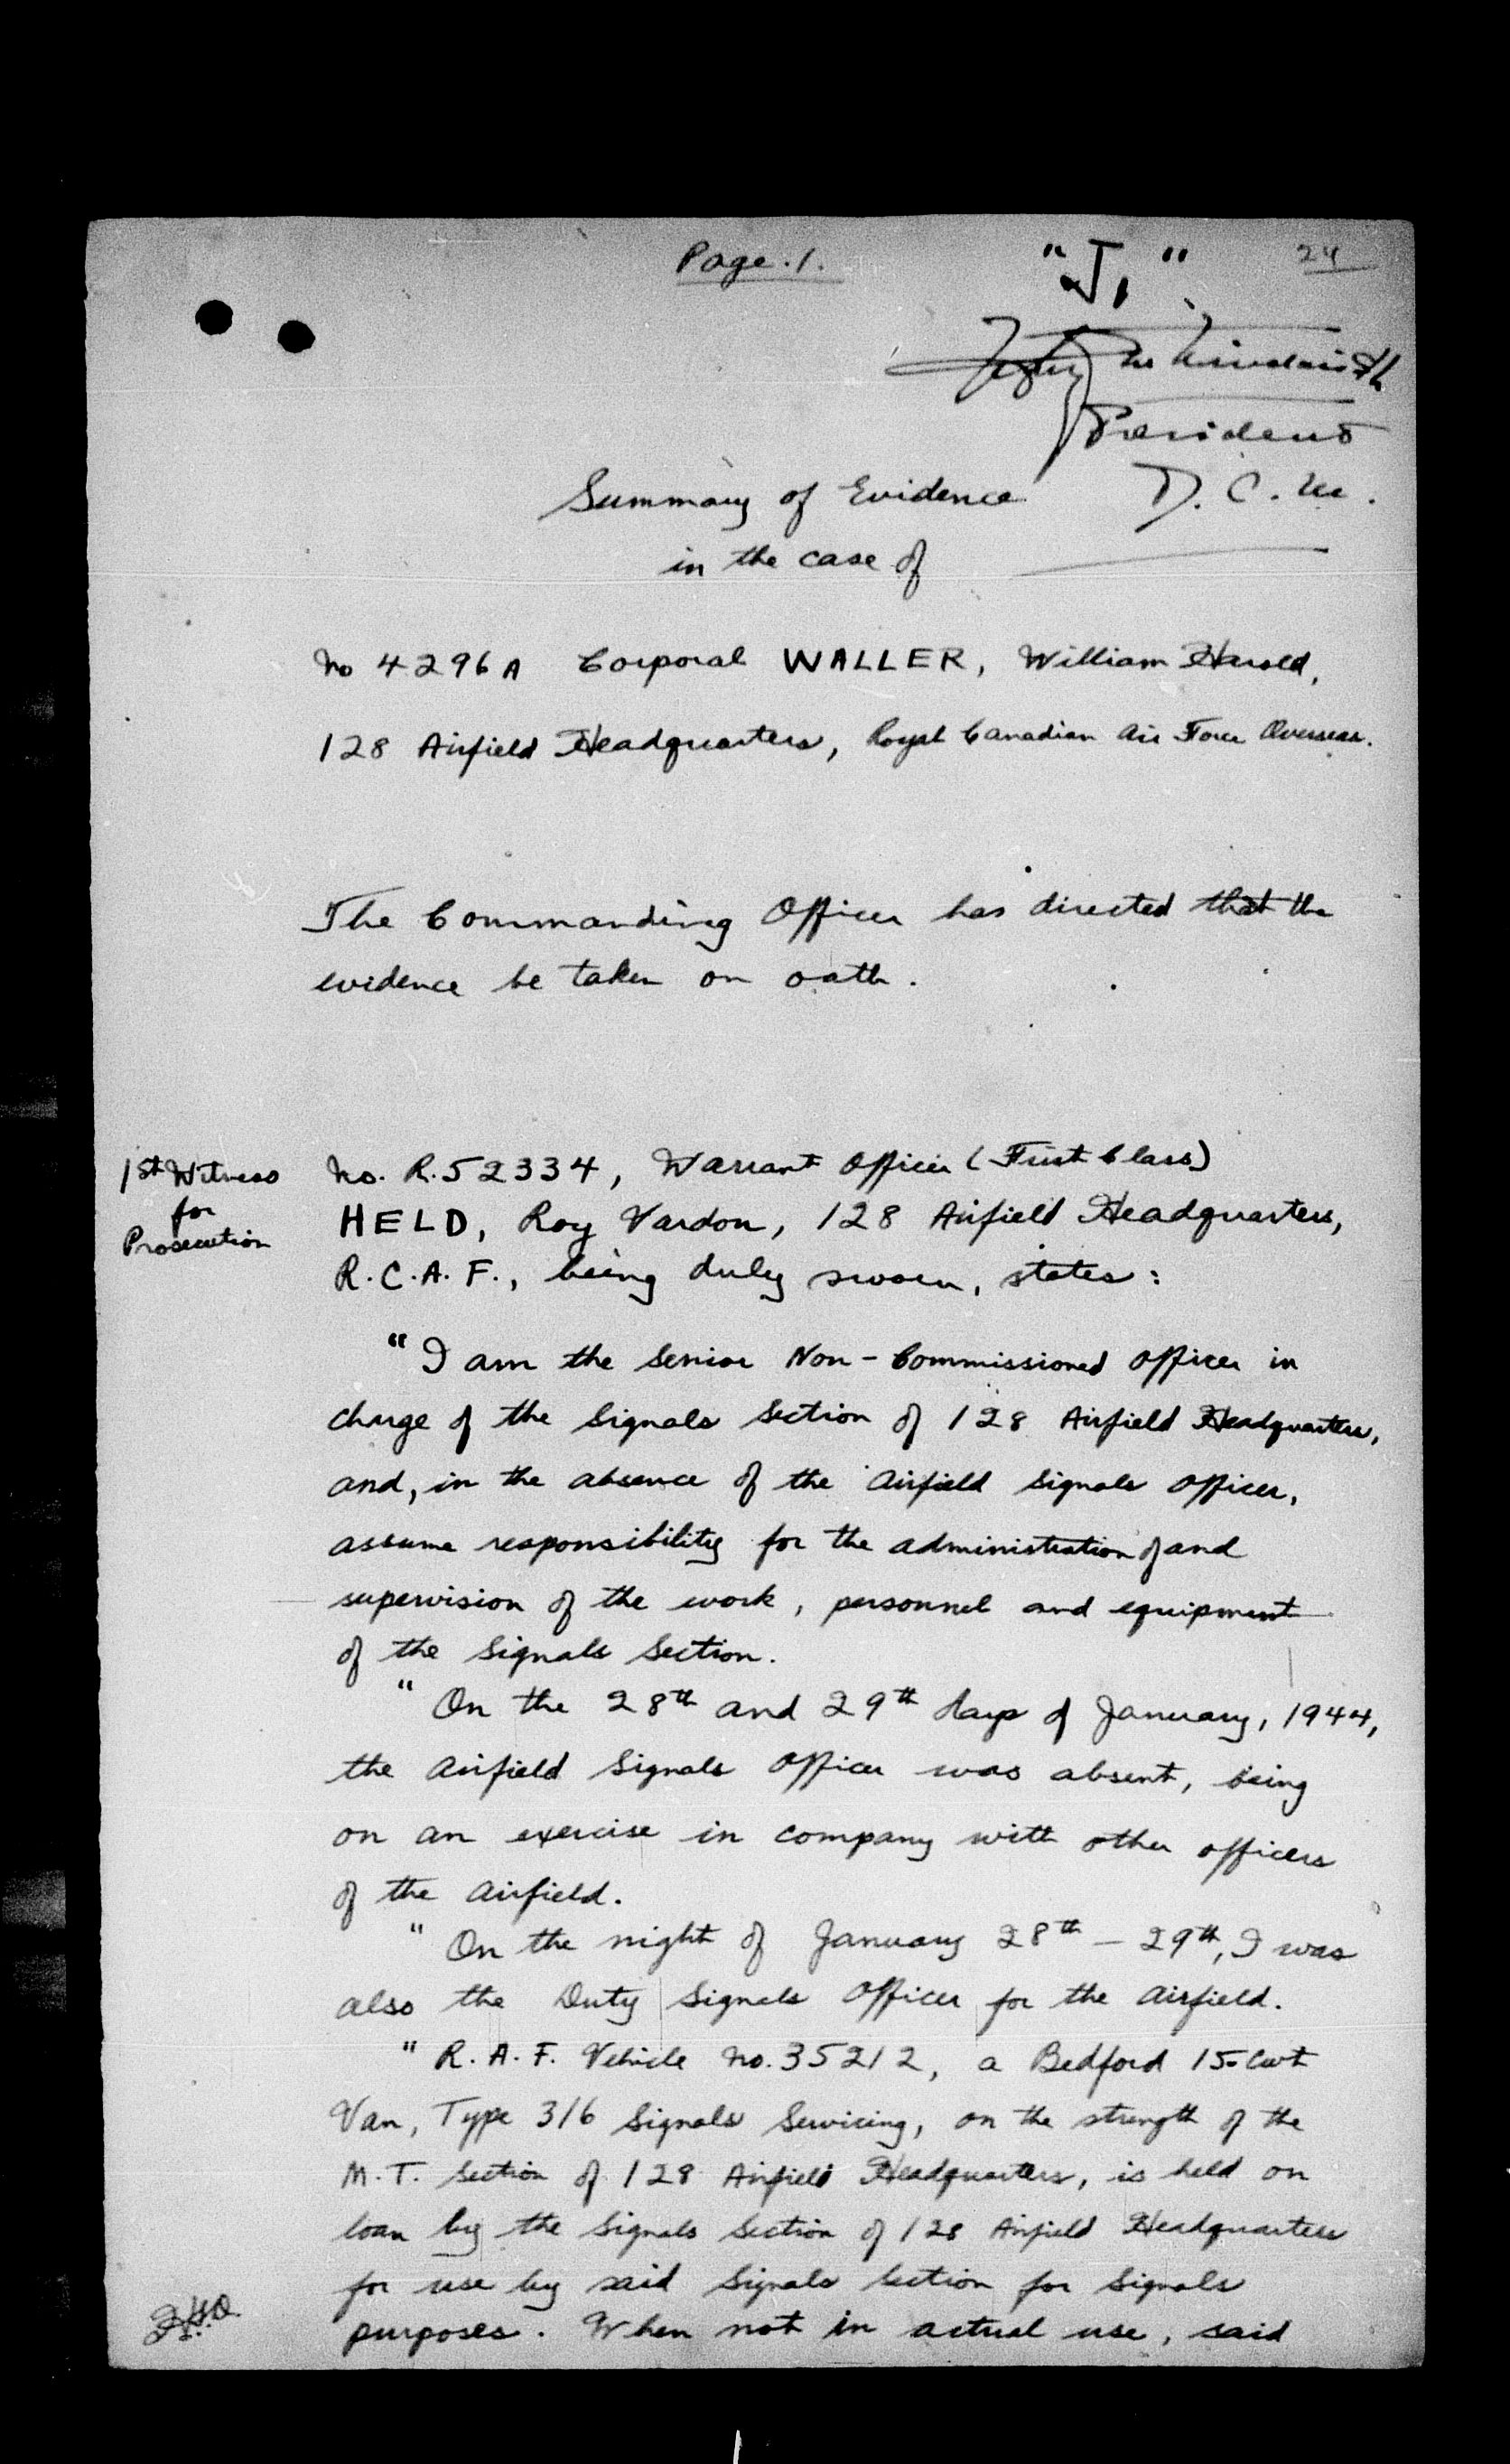 Page. 1.
"J1"
24
President
D. C. M.
Summary of Evidence
in the case of
No 4296A Corporal WALLER, William Harold,
128 Airfield Headquarters, Royal Canadian Air Force Overseas.
The Commanding Officer has directed that the
evidence be taken on oath.
1st Witness
for
Prosecution
No. R.52334, Warrant Officer (First Class)
HELD, Roy Vardon, 128 Airfield Headquarters,
R.C.A.F., being duly sworn, states:
"I am the Senior Non-Commissioned Officer in
charge of the Signals Section of 128 Airfield Headquarters,
and, in the absence of the Airfield Signals Officer,
assume responsibility for the administration of and
supervision of the work, personnel and equipment
of the Signals Section.
"On the 28th and 29th days of January, 1944,
the Airfield Signals Officer was absent, being
on an exercise in company with other officers
of the Airfield.
"On the night of January 28th - 29th, I was
also the Duty Signals Officer for the Airfield.
"R.A.F. Vehicle No. 35212, a Bedford 15-cwt
Van, Type 316 Signals Servicing, on the strength of the
M.T. Section of 128 Airfield Headquarters, is held on
loan by the Signals Section of 128 Airfield Headquarters
for use by said Signals Section for Signals
purposes. When not in actual use, said